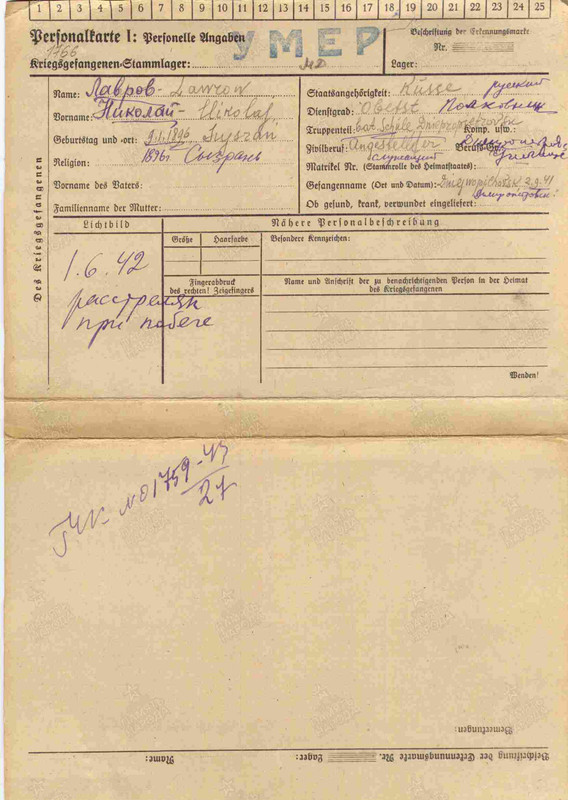 1 2 3 4 5 6 7 8 9 10 11 12 13 14 15 16 17 18 19 20 21 22 23 24 25
Personalkarte I: Personelle Angaben
1766
Kriegsgefangenen-Stammlager:
УМЕР
Beschriftung der Erkennungsmarke
Nr.
Lager:
Des Kriegsgefangenen
Name: Лавров- Lawrow
Vorname: Николай- Nikolaj
Geburtstag und -ort: 9.1.1896 Sysran
Religion: 1896г Сызрань
Vorname des Vaters:
Familienname der Mutter:
Staatsangehörigkeit: Russe русский
Dienstgrad: Oberst Полковник
Truppenteil: Schule Komp. usw.:
Zivilberuf: Angestellter
служащий
Matrikel Nr. (Stammrolle des Heimatstaates):
Gefangennahme (Ort und Datum): 2.9.41
Ob gesund, krank, verwundet eingeliefert:
Lichtbild
1.6.42
расстрелян
при побеге
Nähere Personalbeschreibung
Größe
Haarfarbe
Besondere Kennzeichen:
Fingerabdruck
des rechten! Zeigefingers
Name und Anschrift der zu benachrichtigenden Person in der Heimat
des Kriegsgefangenen
Wenden!
№ 01759-43
27
Bemerkungen:
Beschriftung der Erkennungsmarke Nr. Lager: Name: